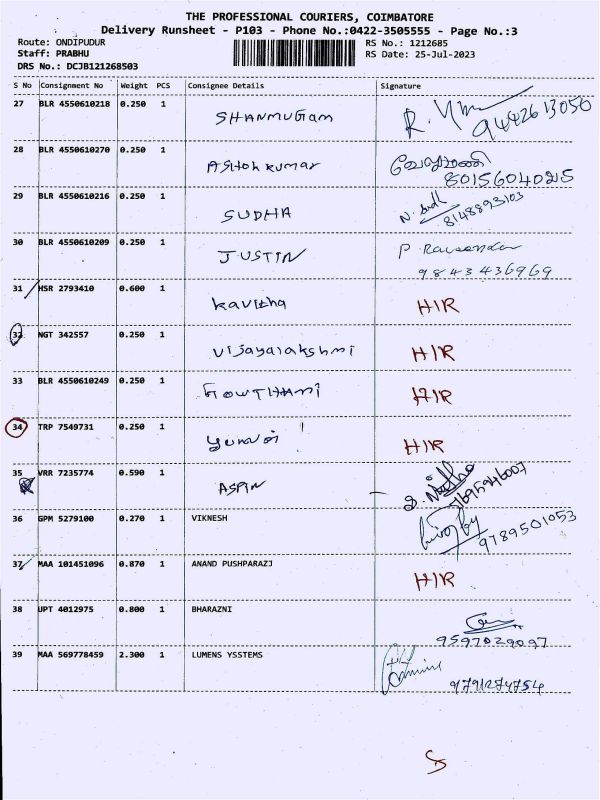 THE PROFESSIONAL COURIERS, COIMBATORE
Delivery Runsheet - P103 - Phone No.:0422-3505555 - Page No.:3
Route: ONDIPUDUR RS No.: 1212685
Staff: PRABHU RS Date: 25-Jul-2023
DRS No.: DCJB121268503
S No Consignment No Weight PCS Consignee Details Signature
27 BLR 4550610218 0.250 1 SHANMUGam 9442613050
28 BLR 4550610270 0.250 1 AShok kumar வேலுமணி
8015604025
29 BLR 4550610216 0.250 1 SUDHA
8148893103
30 BLR 4550610209 0.250 1 JUSTIN
9843436969
31 HSR 2793410 0.600 1 kavitha HIR
32 NGT 342557 0.250 1 vijayalakshmi HIR
33 BLR 4550610249 0.250 1 GowTHAMi HIR
34 TRP 7549731 0.250 1 HIR
35 VRR 7235774 0.590 1 ASPIN
36 GPM 5279100 0.270 1 VIKNESH 9789501053
37 MAA 101451096 0.870 1 ANAND PUSHPARAZJ HIR
38 UPT 4012975 0.800 1 BHARAZNI
9597029097
39 MAA 569778459 2.300 1 LUMENS YSSTEMS
9791274754